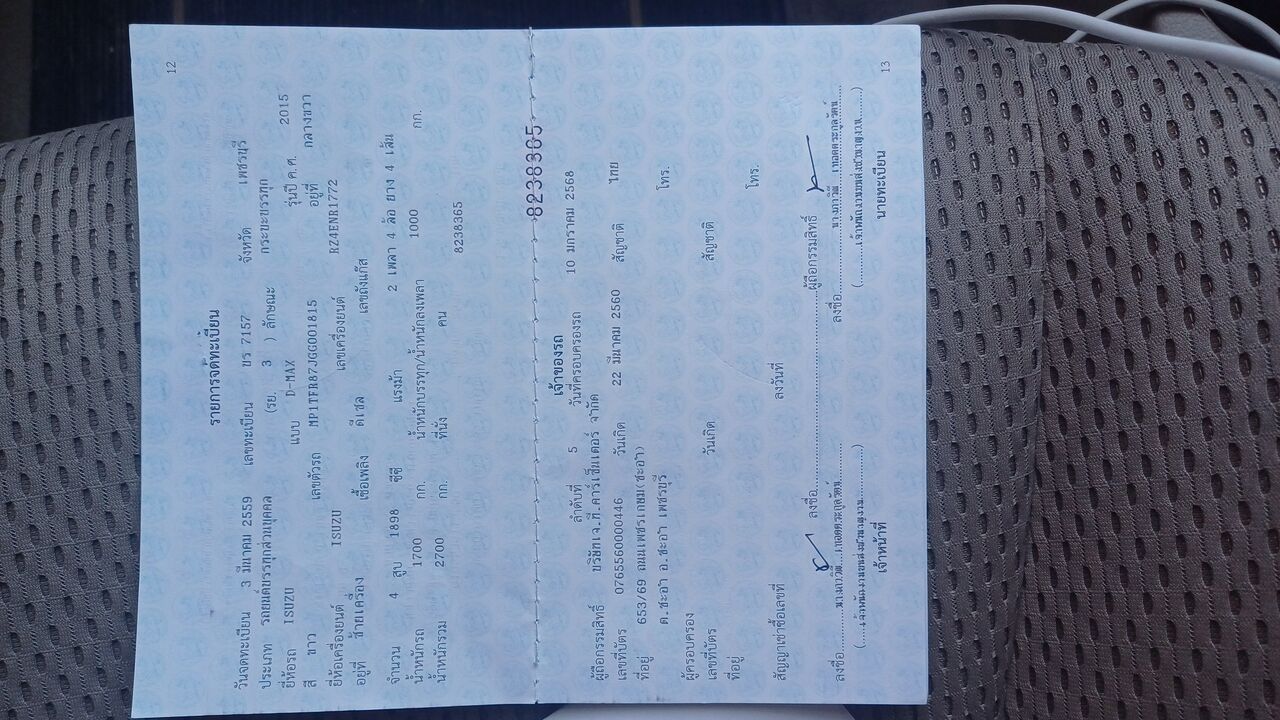 12
รายการจดทะเบียน
วันจดทะเบียน 3 มีนาคม 2559 เลขทะเบียน ขร 7157 จังหวัด เพชรบุรี
ประเภท รถยนต์บรรทุกส่วนบุคคล (รย. 3 ) ลักษณะ กระบะบรรทุก
ยี่ห้อรถ ISUZU แบบ D-MAX รุ่นปี ค.ศ. 2015
สี ขาว เลขตัวรถ MP1TFR87JGG001815 อยู่ที่ กลางขวา
ยี่ห้อเครื่องยนต์ ISUZU เลขเครื่องยนต์ RZ4ENR1772
อยู่ที่ ซ้ายเครื่อง เชื้อเพลิง ดีเซล เลขถังแก๊ส
จำนวน 4 สูบ 1898 ซีซี แรงม้า 2 เพลา 4 ล้อ ยาง 4 เส้น
น้ำหนักรถ 1700 กก. น้ำหนักบรรทุก/น้ำหนักลงเพลา 1000 กก.
น้ำหนักรวม 2700 กก. ที่นั่ง คน
8238365
8238365
เจ้าของรถ
ลำดับที่ 5 วันที่ครอบครองรถ 10 มกราคม 2568
ผู้ถือกรรมสิทธิ์ บริษัทเจ.ที.คาร์เซ็นเตอร์ จำกัด
เลขที่บัตร 0765560000446 วันเกิด 22 มีนาคม 2560 สัญชาติ ไทย
ที่อยู่ 653/69 ถนนเพชรเกษม(ชะอำ) โทร.
ต.ชะอำ อ.ชะอำ เพชรบุรี
ผู้ครอบครอง
เลขที่บัตร วันเกิด สัญชาติ
ที่อยู่ โทร.
สัญญาเช่าซื้อเลขที่ ลงวันที่
ลงชื่อ ผู้ถือกรรมสิทธิ์
ลงชื่อ ลงชื่อ
เจ้าหน้าที่ นายทะเบียน
13